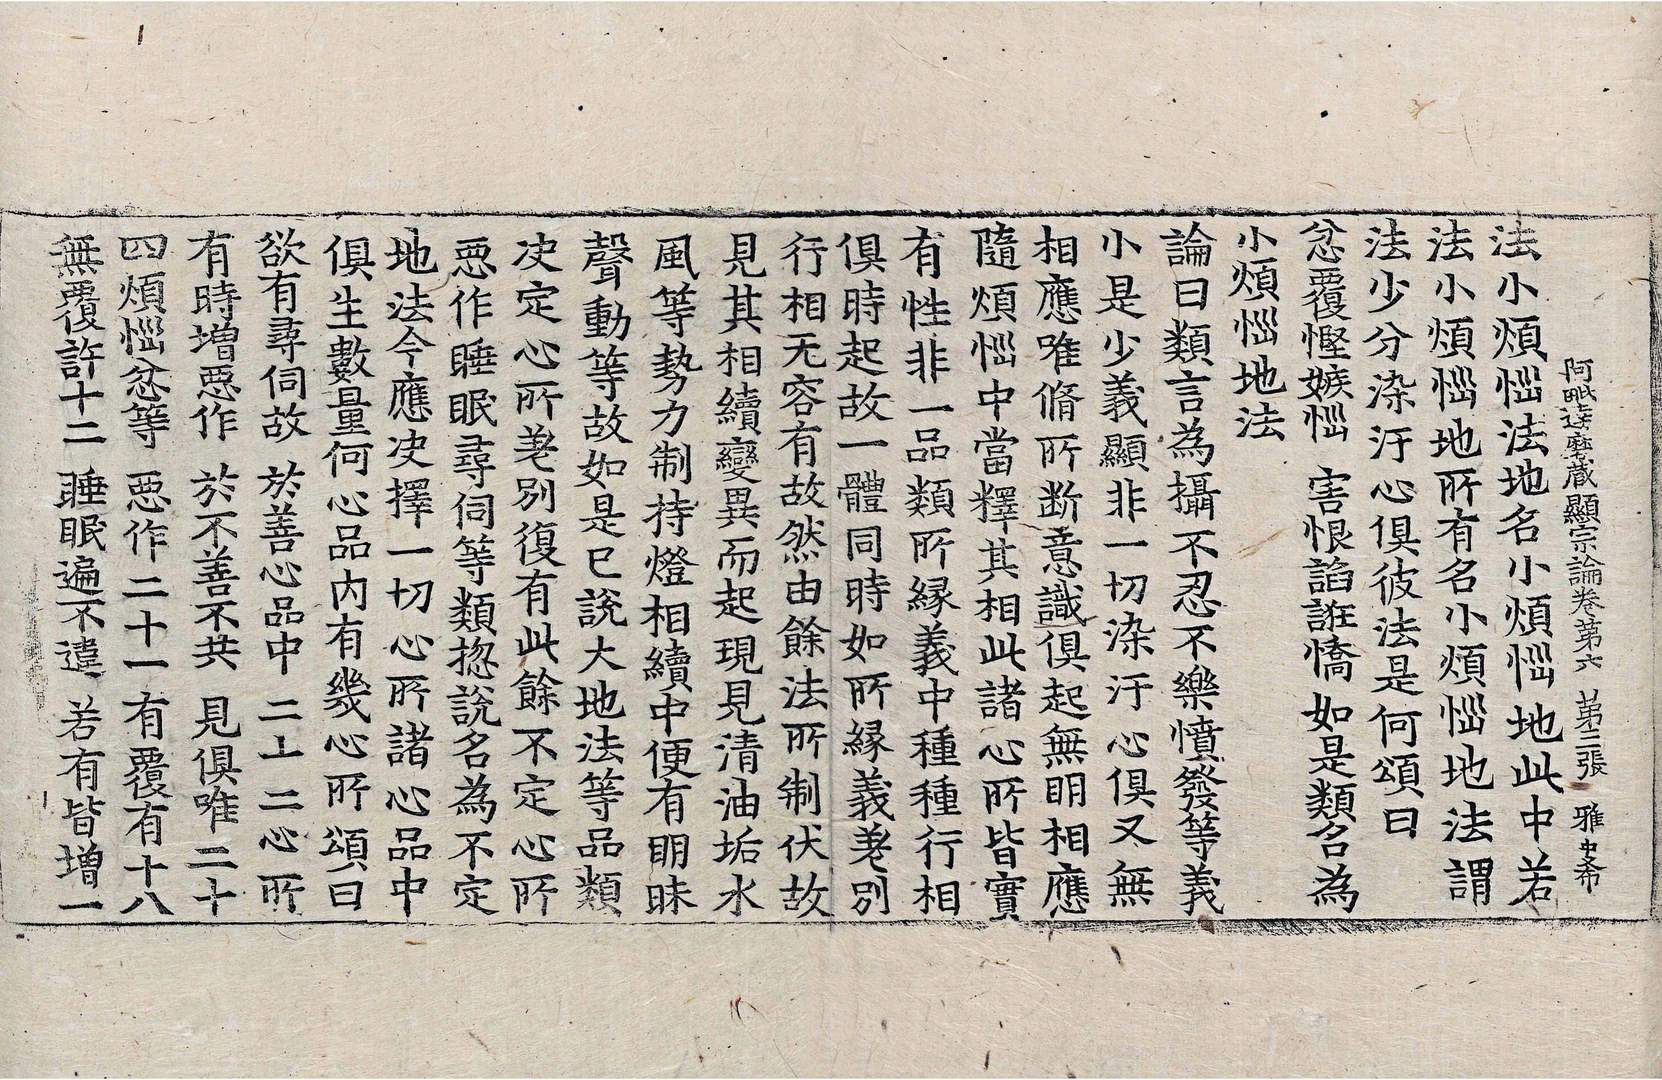 阿毗達磨藏顯宗論卷第六 第二張 雅
法小煩惱法地名小煩惱地此中若
法小煩惱地所有名小煩惱地法謂
法少分染汙心俱彼法是何頌曰
忿覆慳嫉惱 害恨諂誑憍 如是類名為
小煩惱地法
論曰類言為攝不忍不樂憤發等義
小是少義顯非一切染汙心俱又無
相應唯脩所斷意識俱起無明相應
隨煩惱中當釋其相此諸心所皆實
有性非一品類所緣義中種種行相
俱時起故一體同時如所緣義差別
行相无容有故然由餘法所制伏故
見其相續變異而起現見清油垢水
風等勢力制持燈相續中便有明昧
聲動等故如是已說大地法等品類
决定心所差別復有此餘不定心所
惡作睡眠尋伺等類揔說名為不定
地法今應决擇一切心所諸心品中
俱生數量何心品內有幾心所頌曰
欲有尋伺故 於善心品中 二十二心所
有時增惡作 於不善不共 見俱唯二十
四煩惱忿等 惡作二十一 有覆有十八
無覆許十二 睡眠遍不違 若有皆增一